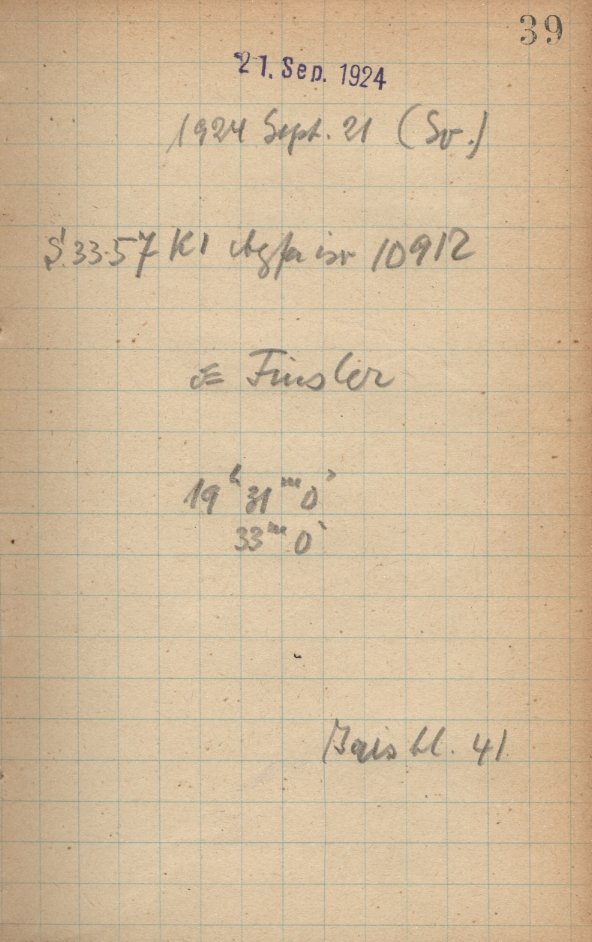 39
21. Sep. 1924
1924 Sept. 21 (So.)
S 33.57 K1 Agfa iso 10912
Finsler
19ʰ 31ᵐ 0ˢ
33ᵐ 0ˢ
bl. 41